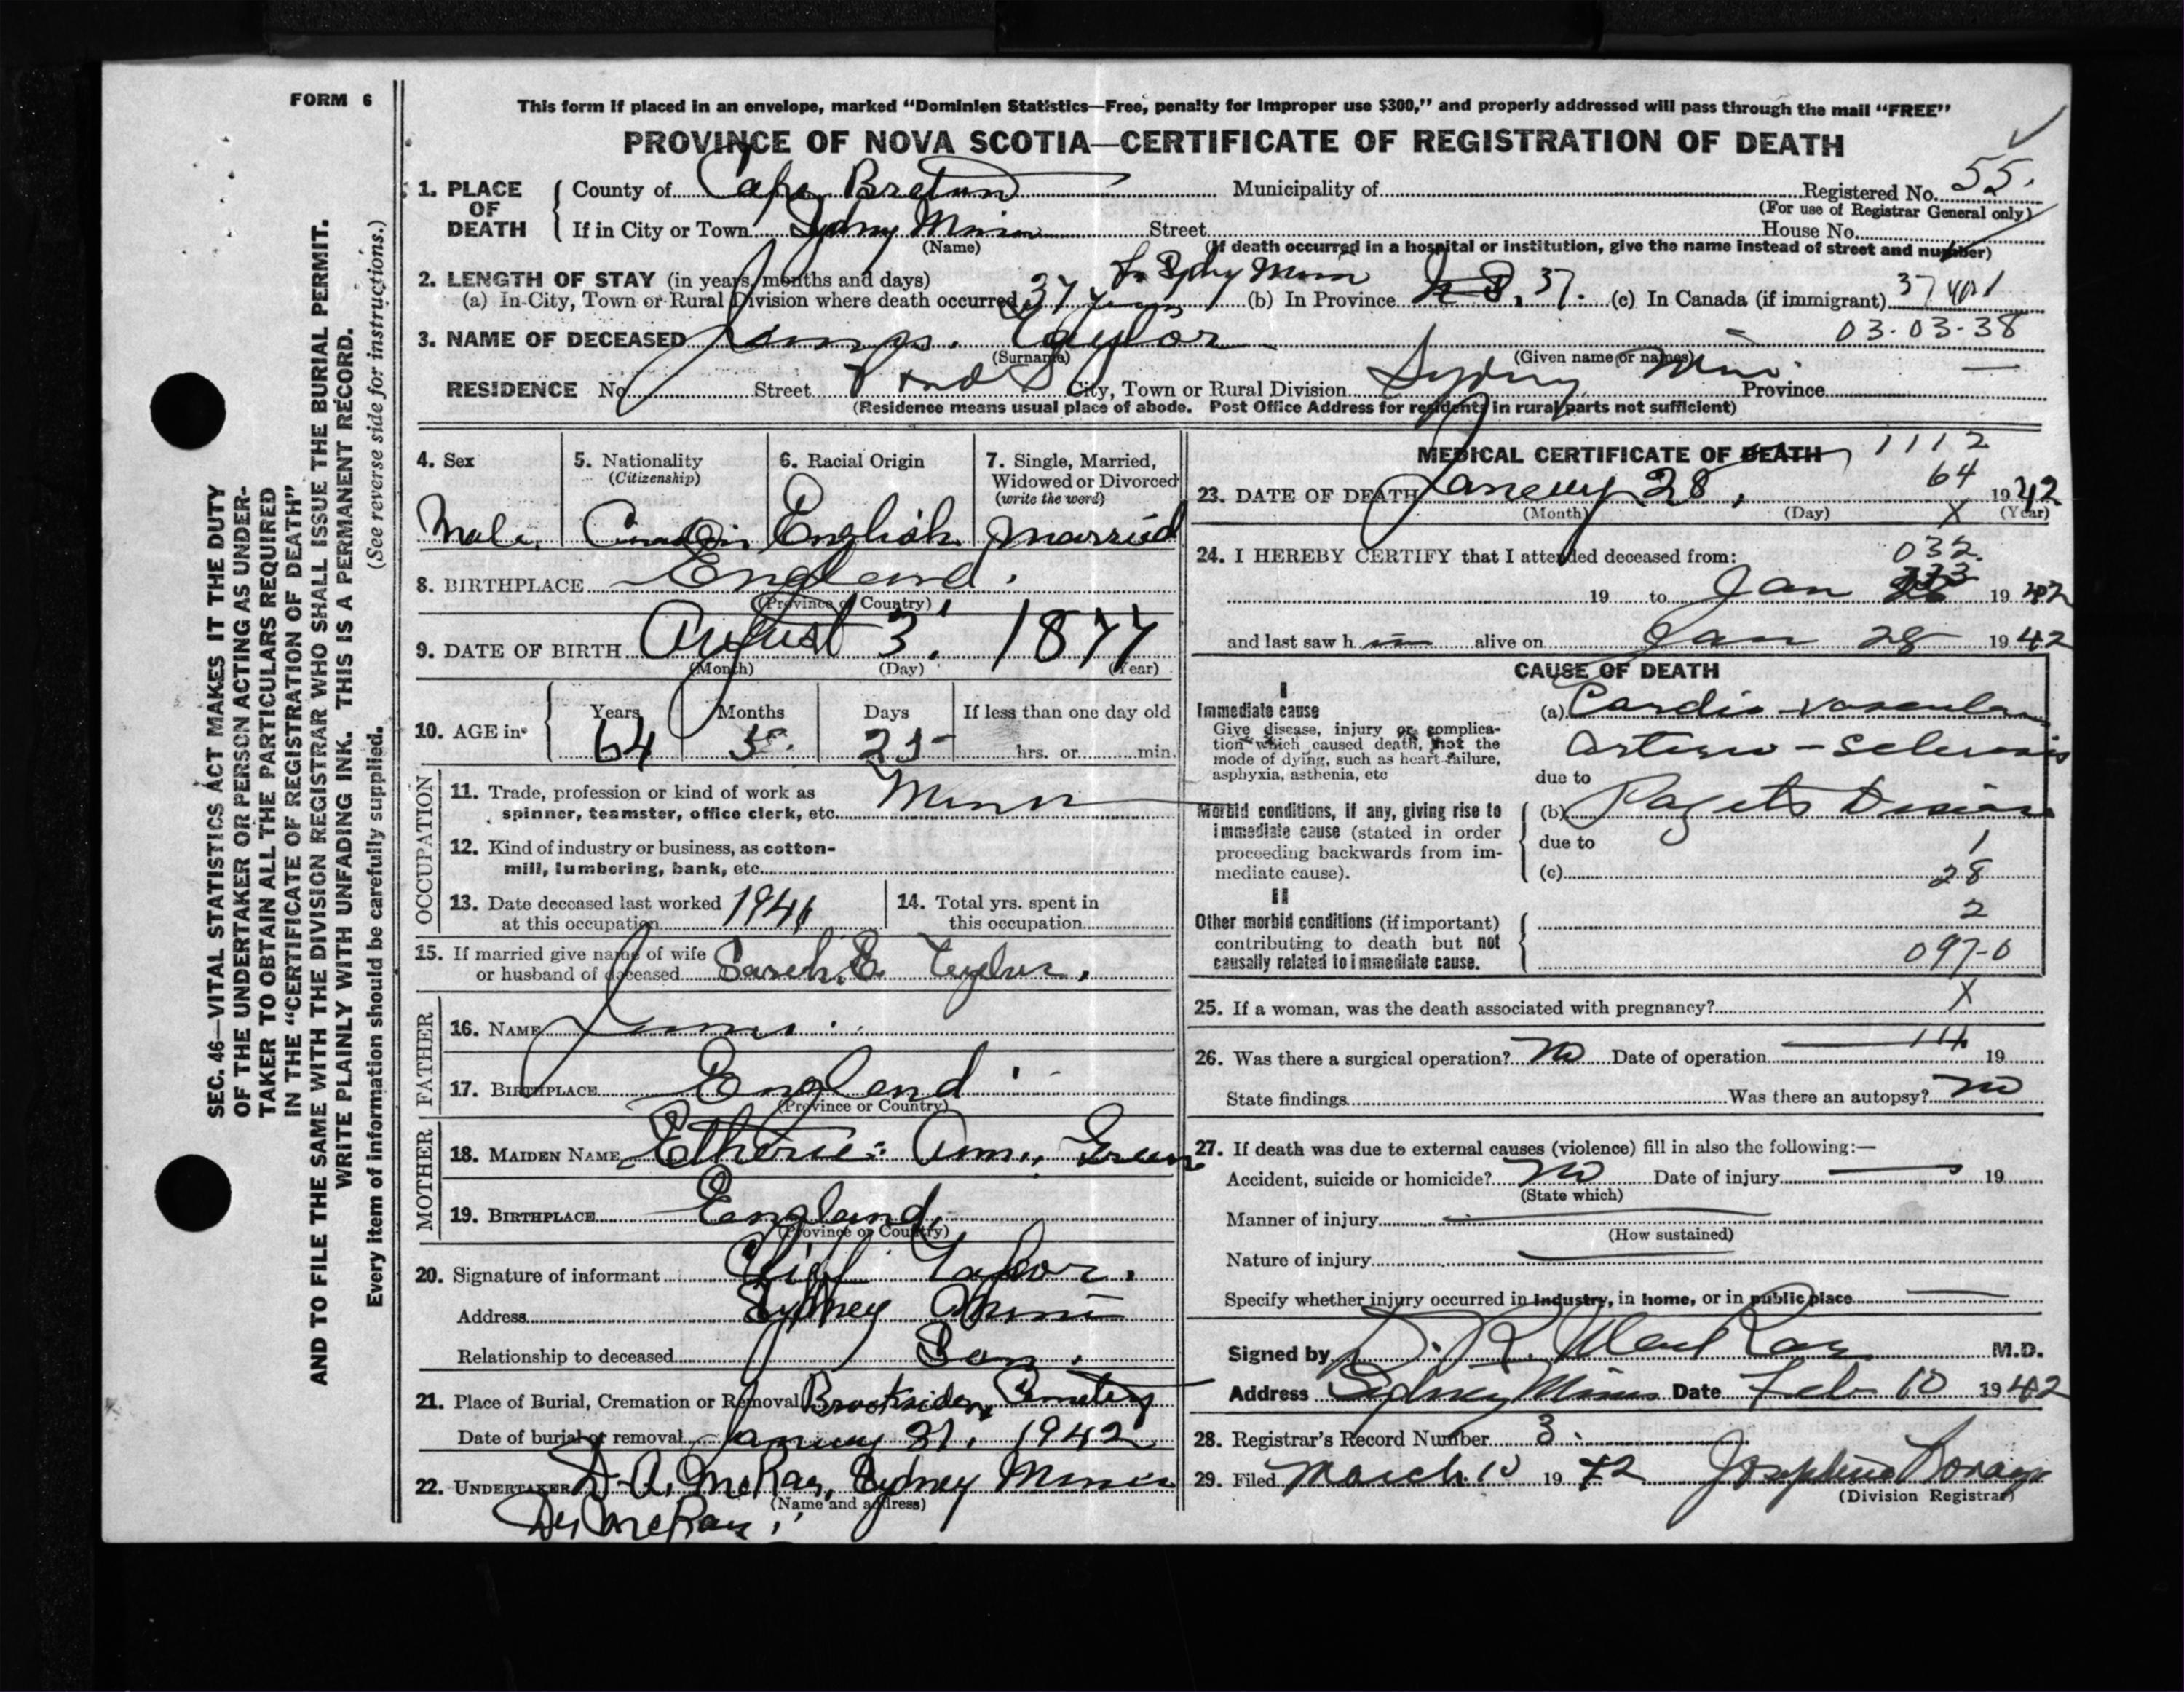 FORM 6
This form if placed in an envelope, marked "Dominion Statistics—Free, penalty for improper use $300," and properly addressed will pass through the mail "FREE"
PROVINCE OF NOVA SCOTIA—CERTIFICATE OF REGISTRATION OF DEATH
1. PLACE OF DEATH County of Cape Breton Municipality of Registered No. 55.
(For use of Registrar General only)
If in City or Town Sydney Mines Street House No.
(Name) (If death occurred in a hospital or institution, give the name instead of street and number)
2. LENGTH OF STAY (in years, months and days)
(a) In City, Town or Rural Division where death occurred 37 years (b) In Province N.S. 37. (c) In Canada (if immigrant) 37 yrs
03-03-38
3. NAME OF DECEASED James. Taylor
(Surname) (Given name or names)
RESIDENCE No. Street Pond St City, Town or Rural Division Sydney Mines Province
(Residence means usual place of abode. Post Office Address for residents in rural parts not sufficient)
4. Sex 5. Nationality 6. Racial Origin 7. Single, Married,
(Citizenship) Widowed or Divorced
(write the word)
Male. Canadian English Married
8. BIRTHPLACE England.
(Province or Country)
9. DATE OF BIRTH August 3. 1877
(Month) (Day) (Year)
10. AGE in Years Months Days If less than one day old
64 5. 25 hrs. or min.
OCCUPATION
11. Trade, profession or kind of work as
spinner, teamster, office clerk, etc. Miner
12. Kind of industry or business, as cotton-
mill, lumbering, bank, etc.
13. Date deceased last worked 1941 14. Total yrs. spent in
at this occupation this occupation
15. If married give name of wife
or husband of deceased Sarah. E. Taylor.
FATHER
16. NAME James.
17. BIRTHPLACE England
(Province or Country)
MOTHER
18. MAIDEN NAME Ann Green
19. BIRTHPLACE England.
(Province or Country)
20. Signature of informant Taylor.
Address Sydney Mines
Relationship to deceased Son.
21. Place of Burial, Cremation or Removal Brookside Cemetery
Date of burial or removal January 31. 1942
22. UNDERTAKER D. A. McRae, Sydney Mines
(Name and address)
McRae
MEDICAL CERTIFICATE OF DEATH 1112
64
23. DATE OF DEATH January 28, 1942
(Month) (Day) X (Year)
24. I HEREBY CERTIFY that I attended deceased from:
032
19 to Jan 1942
and last saw h im alive on Jan 28 1942
CAUSE OF DEATH
I
Immediate cause
Give disease, injury or complica-
tion which caused death, not the
mode of dying, such as heart failure,
asphyxia, asthenia, etc
(a) Cardio-vascular
arterio-sclerosis
due to
Morbid conditions, if any, giving rise to
immediate cause (stated in order
proceeding backwards from im-
mediate cause).
(b) Pagets Disease
due to 1
(c) 28
II
2
Other morbid conditions (if important)
contributing to death but not
causally related to immediate cause. 097-0
25. If a woman, was the death associated with pregnancy? X
26. Was there a surgical operation? No Date of operation 19
State findings Was there an autopsy? No
27. If death was due to external causes (violence) fill in also the following:—
Accident, suicide or homicide? No Date of injury 19
(State which)
Manner of injury
(How sustained)
Nature of injury
Specify whether injury occurred in industry, in home, or in public place
Signed by D. R. MacRae M.D.
Address Sydney Mines Date Feb 10 1942
28. Registrar's Record Number 3.
29. Filed March 10 1942 Josephine
(Division Registrar)
SEC. 46—VITAL STATISTICS ACT MAKES IT THE DUTY
OF THE UNDERTAKER OR PERSON ACTING AS UNDER-
TAKER TO OBTAIN ALL THE PARTICULARS REQUIRED
IN THE "CERTIFICATE OF REGISTRATION OF DEATH"
AND TO FILE THE SAME WITH THE DIVISION REGISTRAR WHO SHALL ISSUE THE BURIAL PERMIT.
WRITE PLAINLY WITH UNFADING INK. THIS IS A PERMANENT RECORD.
Every item of information should be carefully supplied. (See reverse side for instructions.)